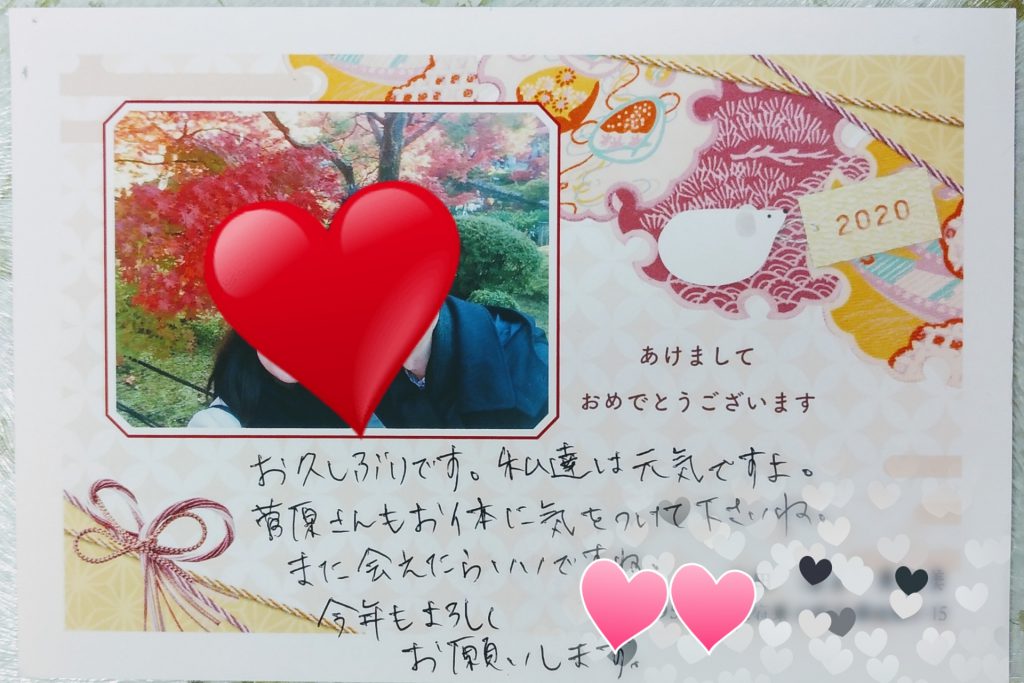 2020
あけまして
おめでとうございます
お久しぶりです。私達は元気ですよ。
菅原さんもお体に気をつけて下さいね。
また会えたらいいですね。
今年もよろしく
お願いします。
15